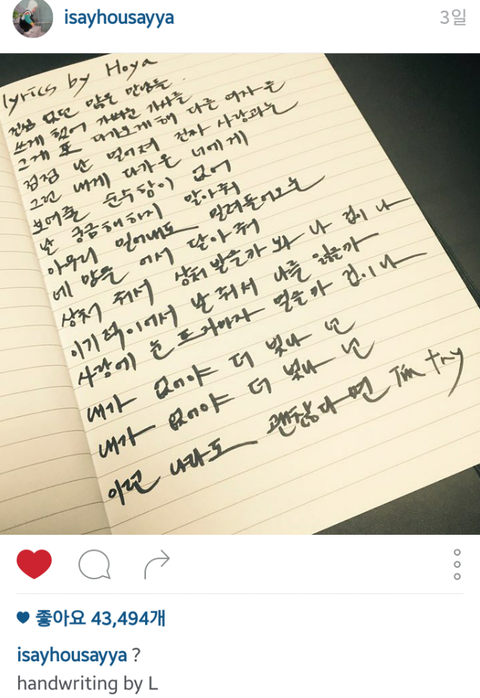 isayhousayya
3일
lyrics by Hoya
진심 없던 많은 만남들
쓰게 했어 가벼운 가사들
그게 또 다가오게 해 다른 여자들
점점 난 멀어져 진짜 사랑과는
그런 내게 다가온 너에게
보여줄 순수함이 없어
난 궁금해하지 말아줘
아무리 밀어내도 밀려들어오는
네 맘을 어서 닫아줘
상처 줘서 상처 받을까 봐 나 겁이 나
이기적이어서 난 줘서 나를 잃을까
사랑에 눈 뜨자마자 멀을까 겁이 나
내가 없어야 더 빛나 넌
내가 없어야 더 빛나 넌
이런 나라도 괜찮다면 I'm try
좋아요 43,494개
isayhousayya ?
handwriting by L